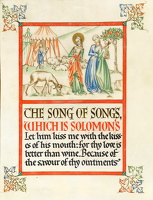 THE SONG OF SONGS,
WHICH IS SOLOMON'S
Let him kiss me with the kiss-
es of his mouth: for thy love is
better than wine. Because of
the savour of thy ointments